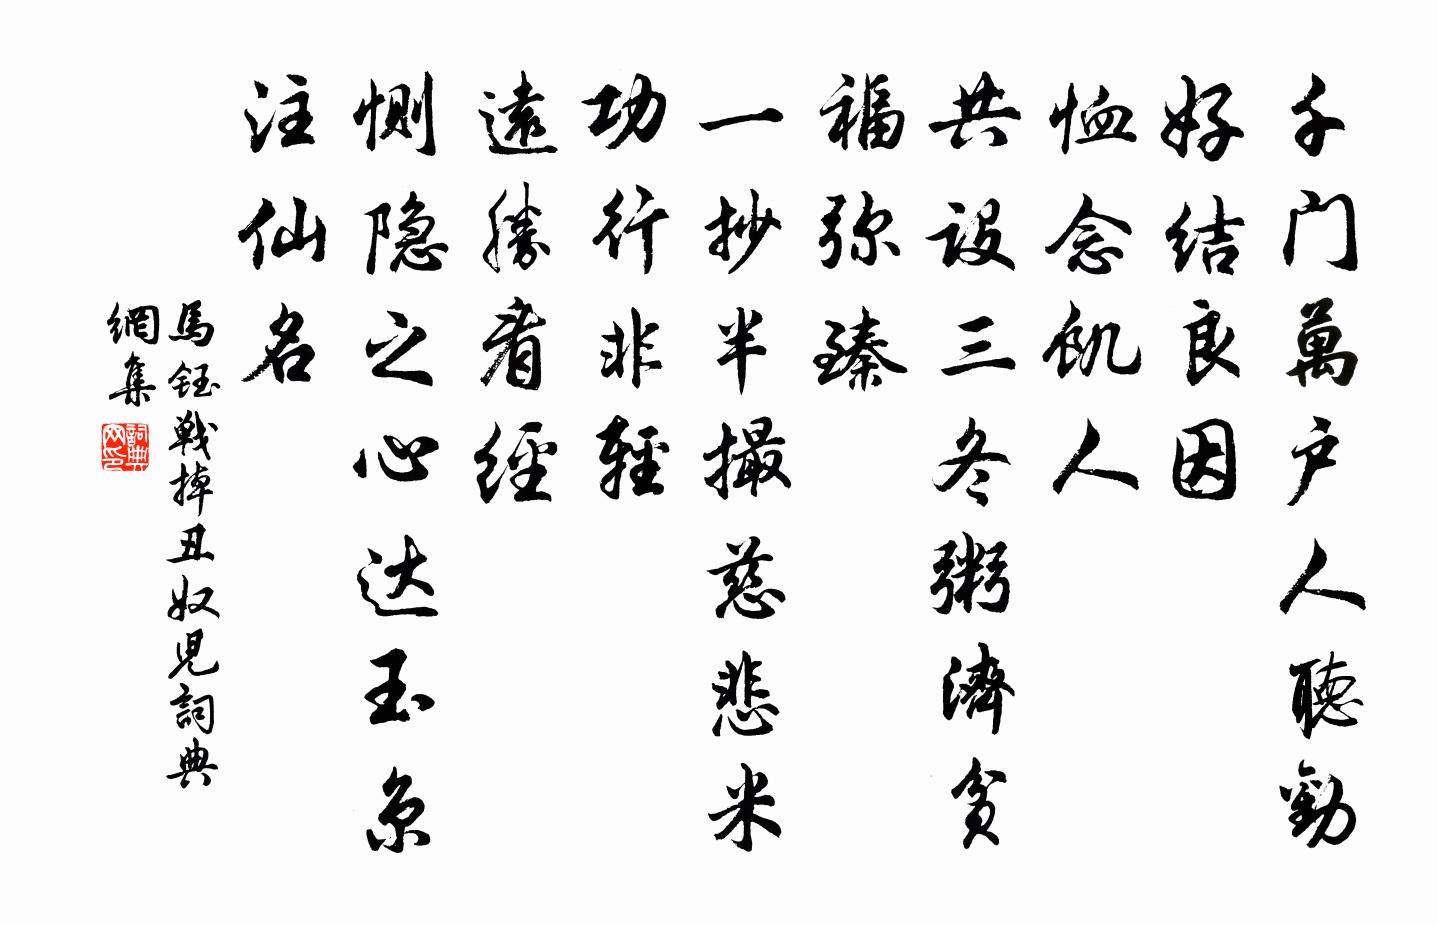 千门萬户人聽勸
好结良因
恤念飢人
共設三冬粥濟贫
福弥臻
一抄半撮慈悲米
功行非輕
遠勝看經
惻隐之心达玉京
注仙名
馬鈺戰掉丑奴兒詞典
網集
詞典网印